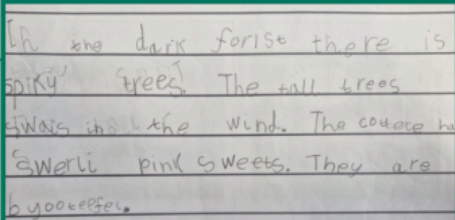 In the dark forist there is
spiky trees. The tall trees
swais in the wind. The cotece ha
swerli pink sweets. They are
byooteefel.